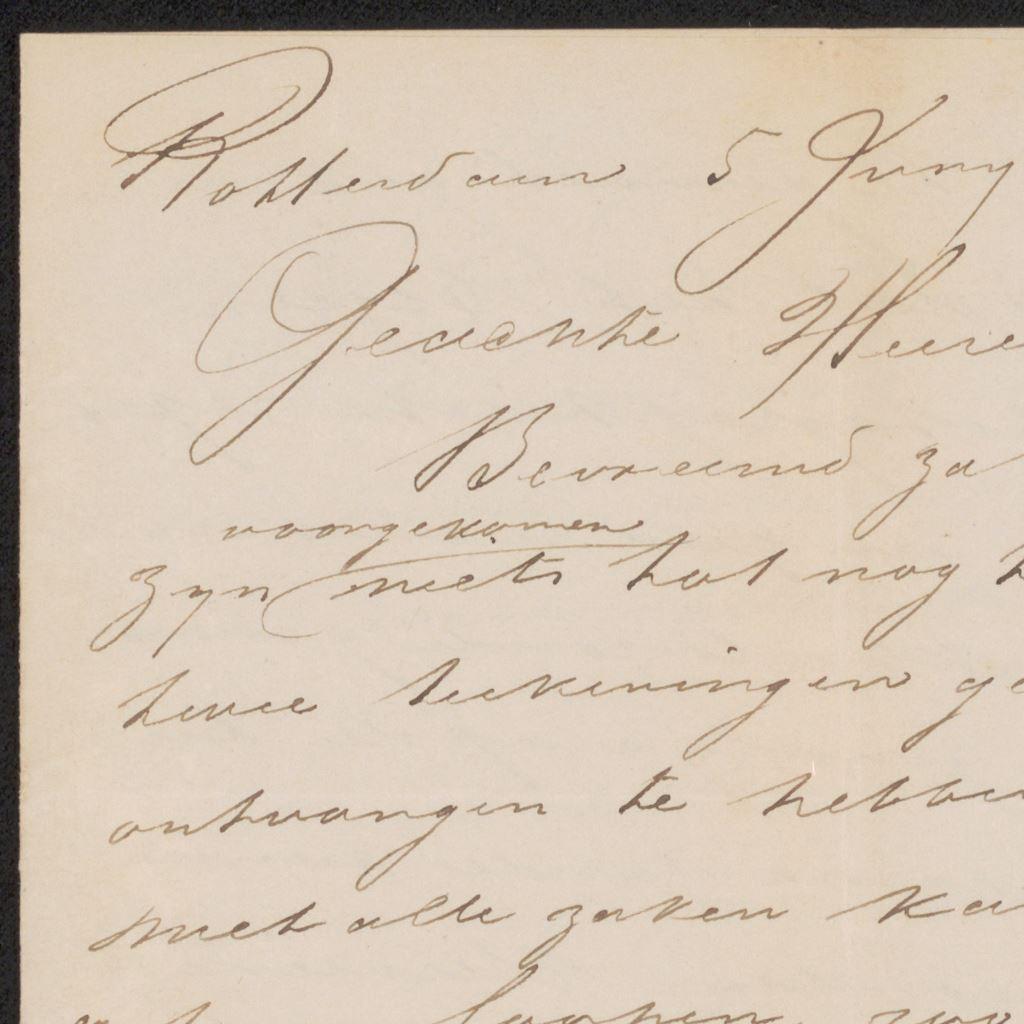 Rotterdam 5 Juny
Geachte Heere
Bevreemd za
voorgekomen
zyn niets tot nog
twee teekeningen ge
ontvangen te hebben
met alle zaken ka
loopen